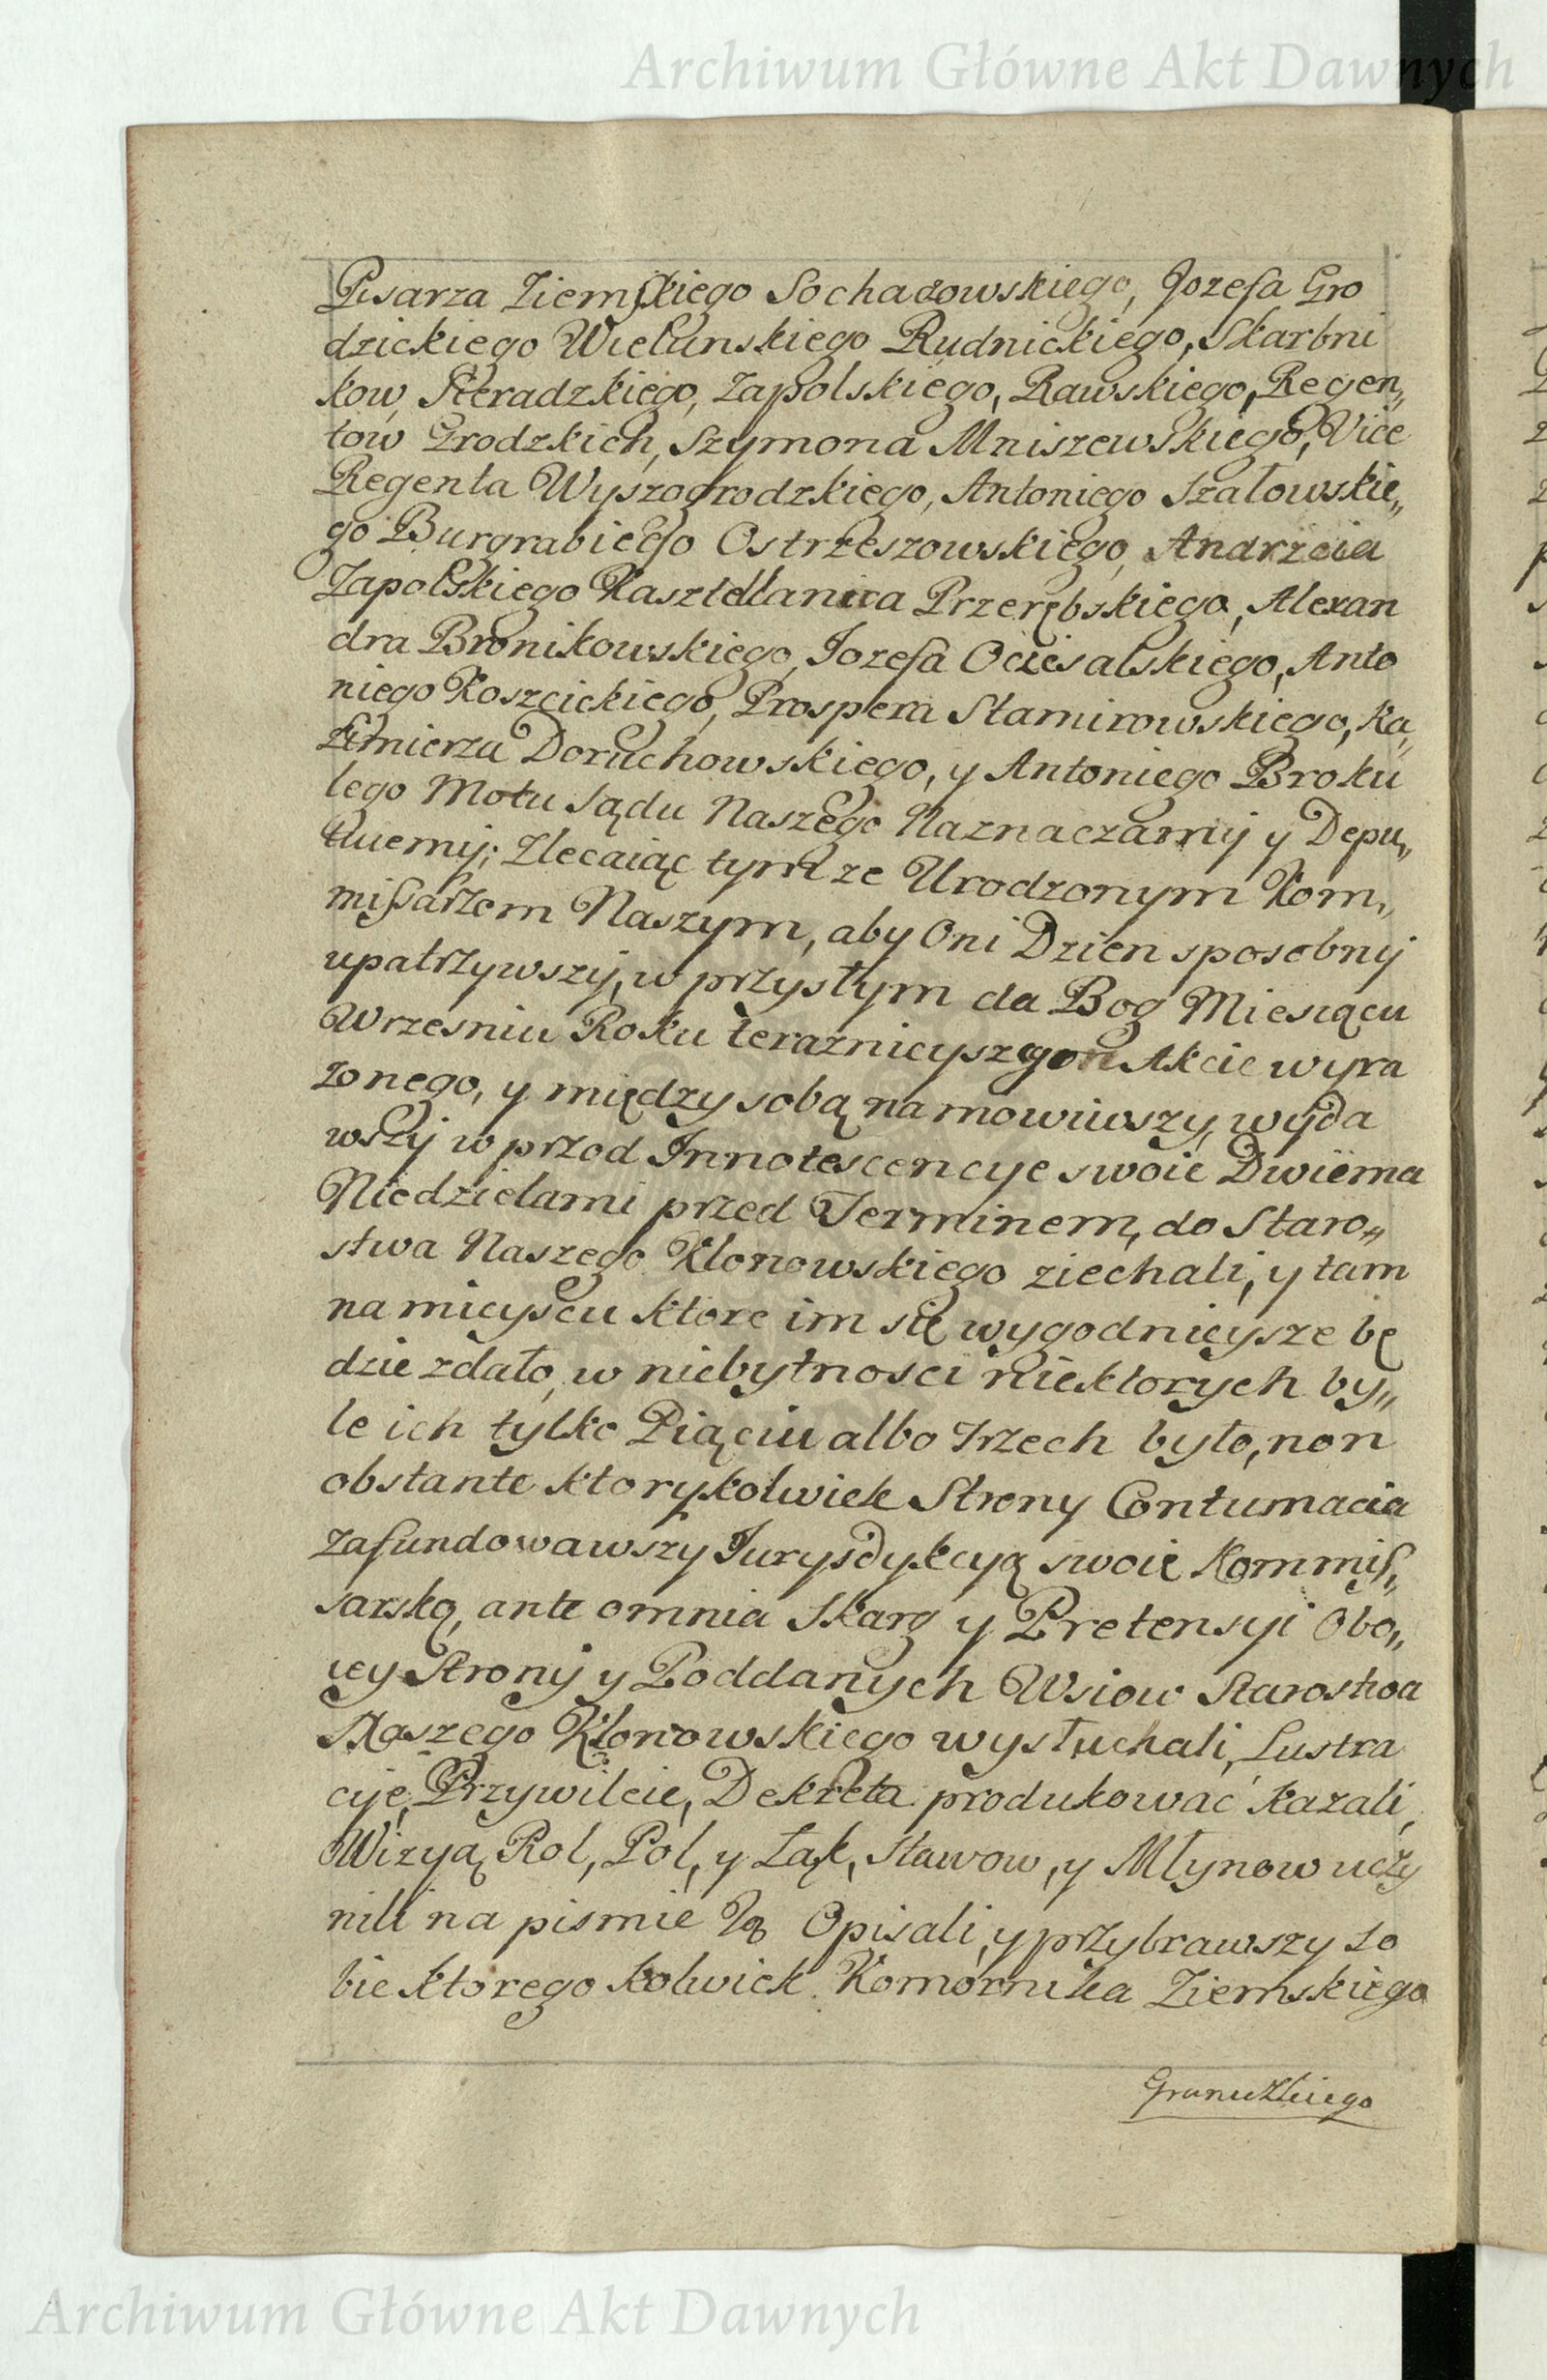 Archiwum Główne Akt Dawnych
Pisarza Ziemskiego Sochaczowskiego, Jozefa Gro
dzickiego Wielunskiego Rudnickiego, Skarbni
kow, Sieradzkiego, Zapolskiego, Rawskiego, Regen„
tow Grodzkich, Szymona Mniszewskiego, Vice
Regenta Wyszogrodzkiego, Antoniego Szatowskie„
go Burgrabiego Ostrzeszowskiego, Andrzeia
Zapolskiego Kasztellanica Przerębskiego, Alexan
dra Bronikowskiego, Jozefa Ociesalskiego, Anto
niego Koszcickiego, Prospera Stamirowskiego, Ka„
zimierza Doruchowskiego, y Antoniego Broku
lego Motu Sądu Naszego Naznaczamy y Depu„
tuiemy; Zlecaiąc tym ze Urodzonym Kom„
missarzem Naszym, aby Oni Dzien sposobny
upatrzywszy, w przyszłym da Bog Miesiącu
Wrzesniu Roku teraznieyszego n Akcie wyra
zonego, y między sobą namowiwszy, wyda
wszy w przod Innotescencye swoie Dwiema
Niedzielami przed Terminem, do Staro„
stwa Naszego Klonowskiego ziechali, y tam
na mieyscu ktore im się wygodnieysze bę
dzie zdało, w niebytnosci niektorych by„
le ich tylko Piąciu albo Trzech było, non
obstante ktorykolwiek Strony Contumacia
zafundowawszy Jurysdykcyą swoię Kommis„
sarską, ante omnia Skarg y Pretensyi Obo„
iey Strony y Poddanych Wsiow Starostwa
Naszego Klonowskiego wysłuchali, Lustra
cye, Przywileie, Dekreta produkować kazali,
Wizyą Rol, Pol, y Łąk, Stawow, y Młynow uczy
nili na pismie Ją Opisali, y przybrawszy so
bie ktorego kolwiek Komornika Ziemskiego
Granicznego
Archiwum Główne Akt Dawnych